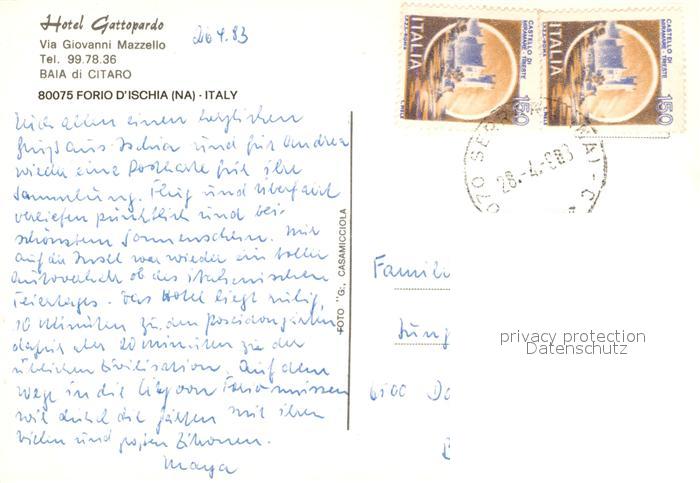 Hotel Gattopardo
Via Giovanni Mazzello
Tel. 99.78.36
BAIA di CITARO
80075 FORIO D'ISCHIA (NA) - ITALY
26 4. 83
Euch allen einen herzlichen
Gruß aus Ischia und für Andrea
wieder eine Postkarte für ihre
Sammlung. Flug und Überfahrt
verliefen pünktlich und bei
schönstem Sonnenschein. Nur
auf der Insel war wieder ein toller
Autoverkehr ob des italienischen
Feiertages. Das Hotel liegt ruhig,
10 Minuten zu den Poseidongärten
dafür aber 20 Minuten zu der
üblichen Zivilisation. Auf dem
Wege in die City von Forio müssen
wir durch die Gärten mit ihren
vielen und großen Zitronen.
Maya
FOTO "G", CASAMICCIOLA
ITALIA
CASTELLO DI
MIRAMARE - TRIESTE
150
ITALIA
CASTELLO DI
MIRAMARE - TRIESTE
150
26.-4.-983
Famili
Jung
6100 Da
privacy protection
Datenschutz